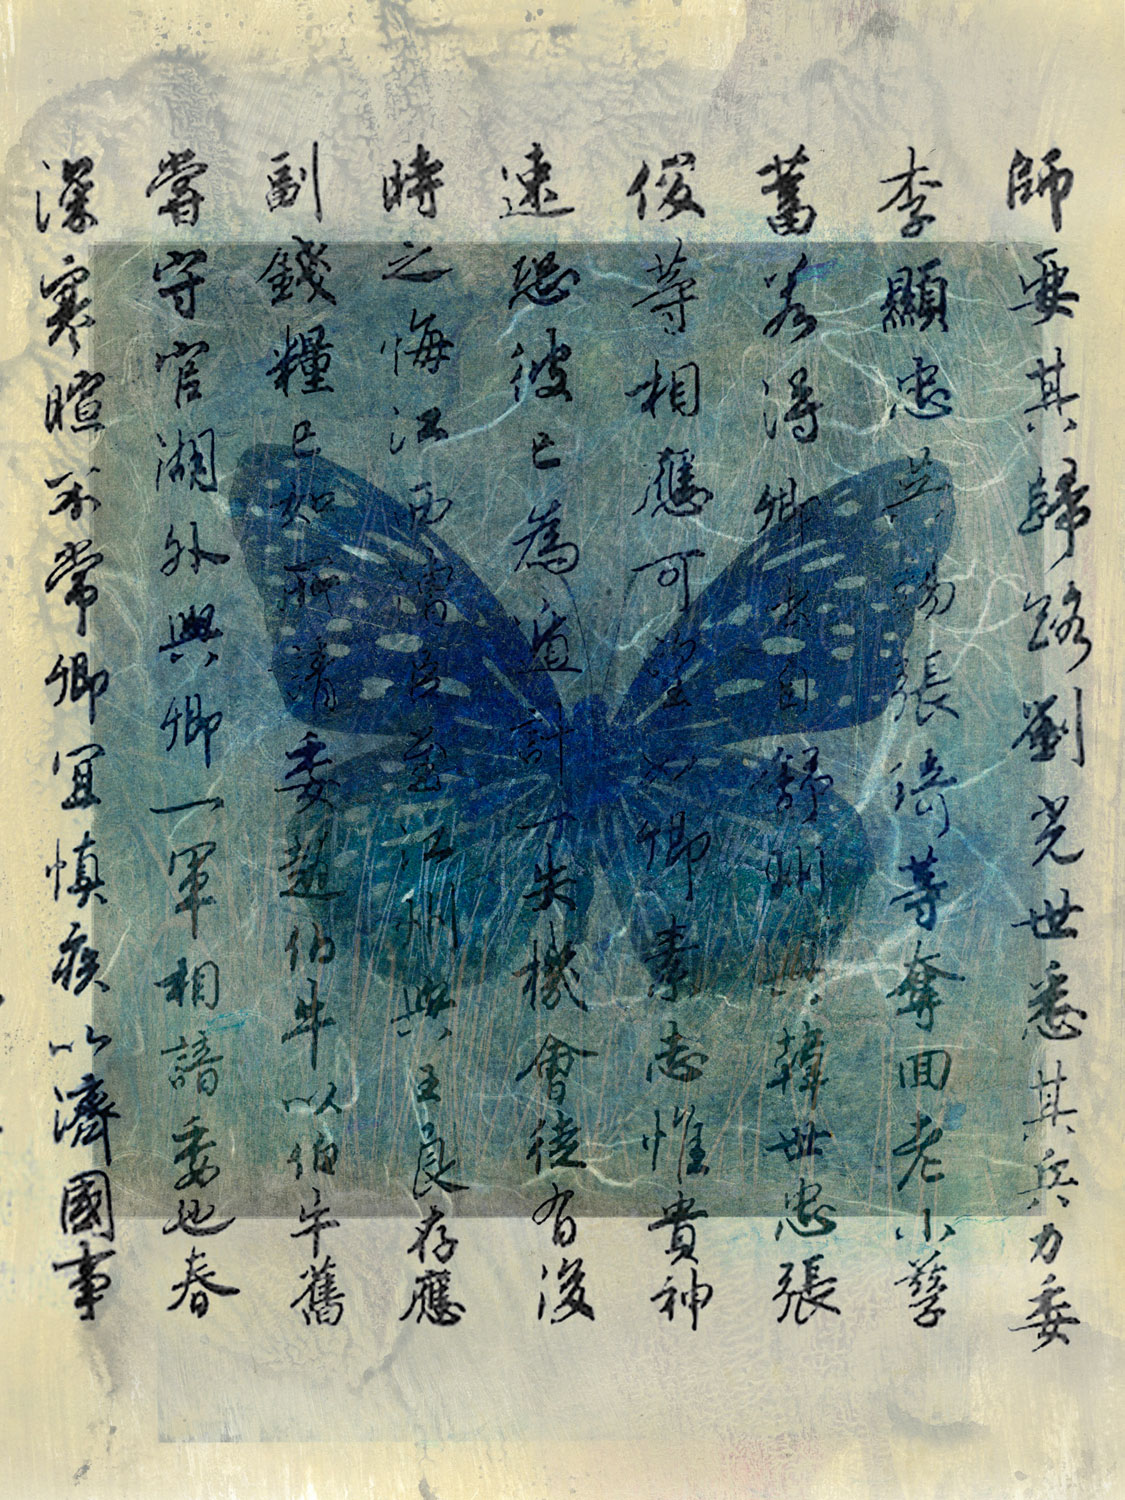 師要其歸路劉光世悉其兵力委
李顯忠吳錫張琦等奪回老小孽
蓄若得卿出自舒州與韓世忠張
俊等相應可望如卿素志惟貴神
速恐彼已為遁計一失機會徒有後
時之悔江西漕臣至江州與王良存應
副錢糧已如所請委趙伯牛以伯牛舊
嘗守官湖外與卿一軍相諳委也春
深寒暄不常卿宜慎疾以濟國事